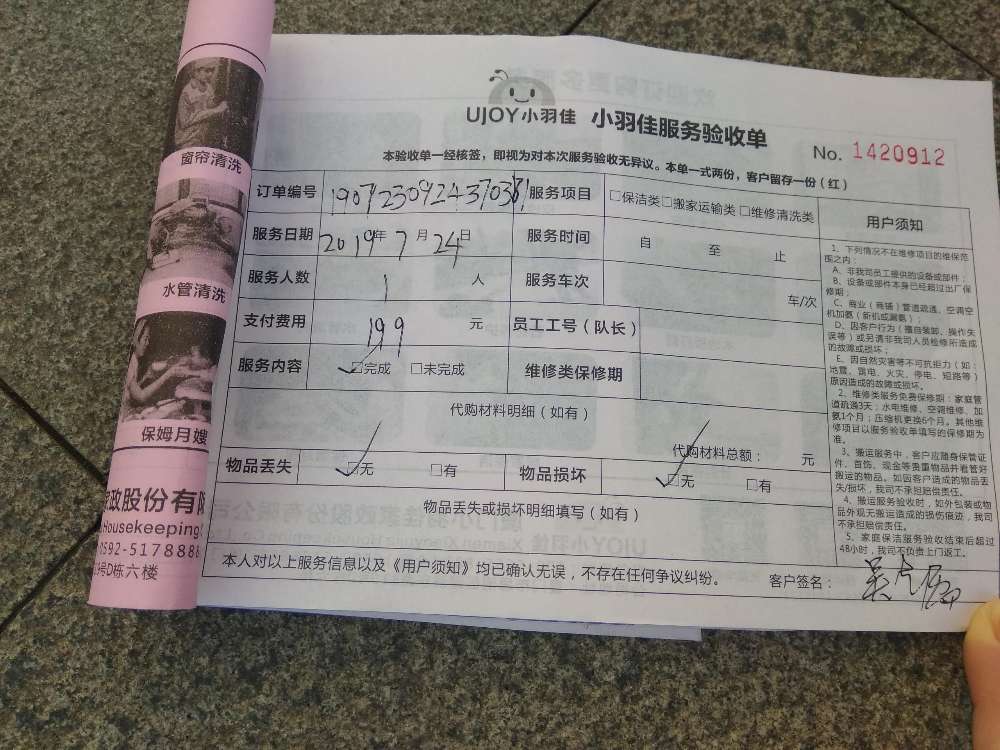 窗帘清洗
水管清洗
保姆月嫂
政股份有限
Housekeeping
0592-5178888
D栋六楼
UJOY小羽佳 小羽佳服务验收单
No. 1420912
本验收单一经核签，即视为对本次服务验收无异议。本单一式两份，客户留存一份（红）
订单编号 服务项目 □保洁类□搬家运输类□维修清洗类
服务日期 2019年7月24日 服务时间 自 至 止
服务人数 1 人 服务车次 车/次
支付费用 199 元 员工工号（队长）
服务内容 □完成 □未完成 维修类保修期
代购材料明细（如有）
代购材料总额： 元
物品丢失 □无 □有 物品损坏 □无 □有
物品丢失或损坏明细填写（如有）
本人对以上服务信息以及《用户须知》均已确认无误，不存在任何争议纠纷。 客户签名：
用户须知
1、下列情况不在维修项目的维保范
围之内：
A、非我司员工提供的设备或部件；
B、设备或部件本身已经超过出厂保
修期；
C、商业（商铺）管道疏通、空调空
机加氨（新机或漏氨）；
D、因客户行为（擅自装卸、操作失
误等）或另请非我司人员检修所造成
的故障或损坏；
E、因自然灾害等不可抗拒力（如：
地震、雷电、火灾、停电、短路等）
原因造成的故障或损坏。
2、维修类服务免费保修期：家庭管
道疏通3天；水电维修、空调维修、加
氨1个月；压缩机更换6个月。其他维
修项目以服务验收单填写的保修期为
准。
3、搬运服务中，客户应随身保管证
件、首饰、现金等贵重物品并看管好
搬运的物品。如因客户造成的物品丢
失/损坏，我司不承担赔偿责任。
4、搬运服务验收时，如外包装或物
品外观无搬运造成的损伤痕迹，我司
不承担赔偿责任。
5、家庭保洁服务验收结束后超过
48小时，我司不负责上门返工。